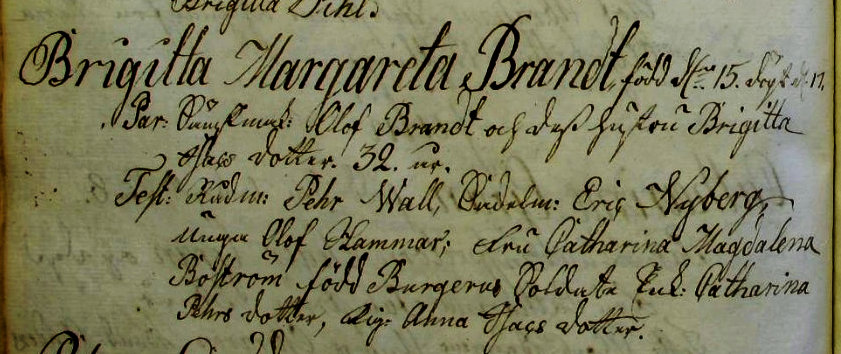 Brigitta
Brigitta Margareta Brandt, född d. 15. döpt d. 17.
Par: Olof Brandt och dess hustru Brigitta
Isacs dotter. 32. år.
Test: Rådm: Pehr Wall, Eric Nyberg,
unga Olof Hammar; Fru Catharina Magdalena
Boström född Burgerus Soldate Catharina
Pehrs dotter, Pig: Anna Isacs dotter.